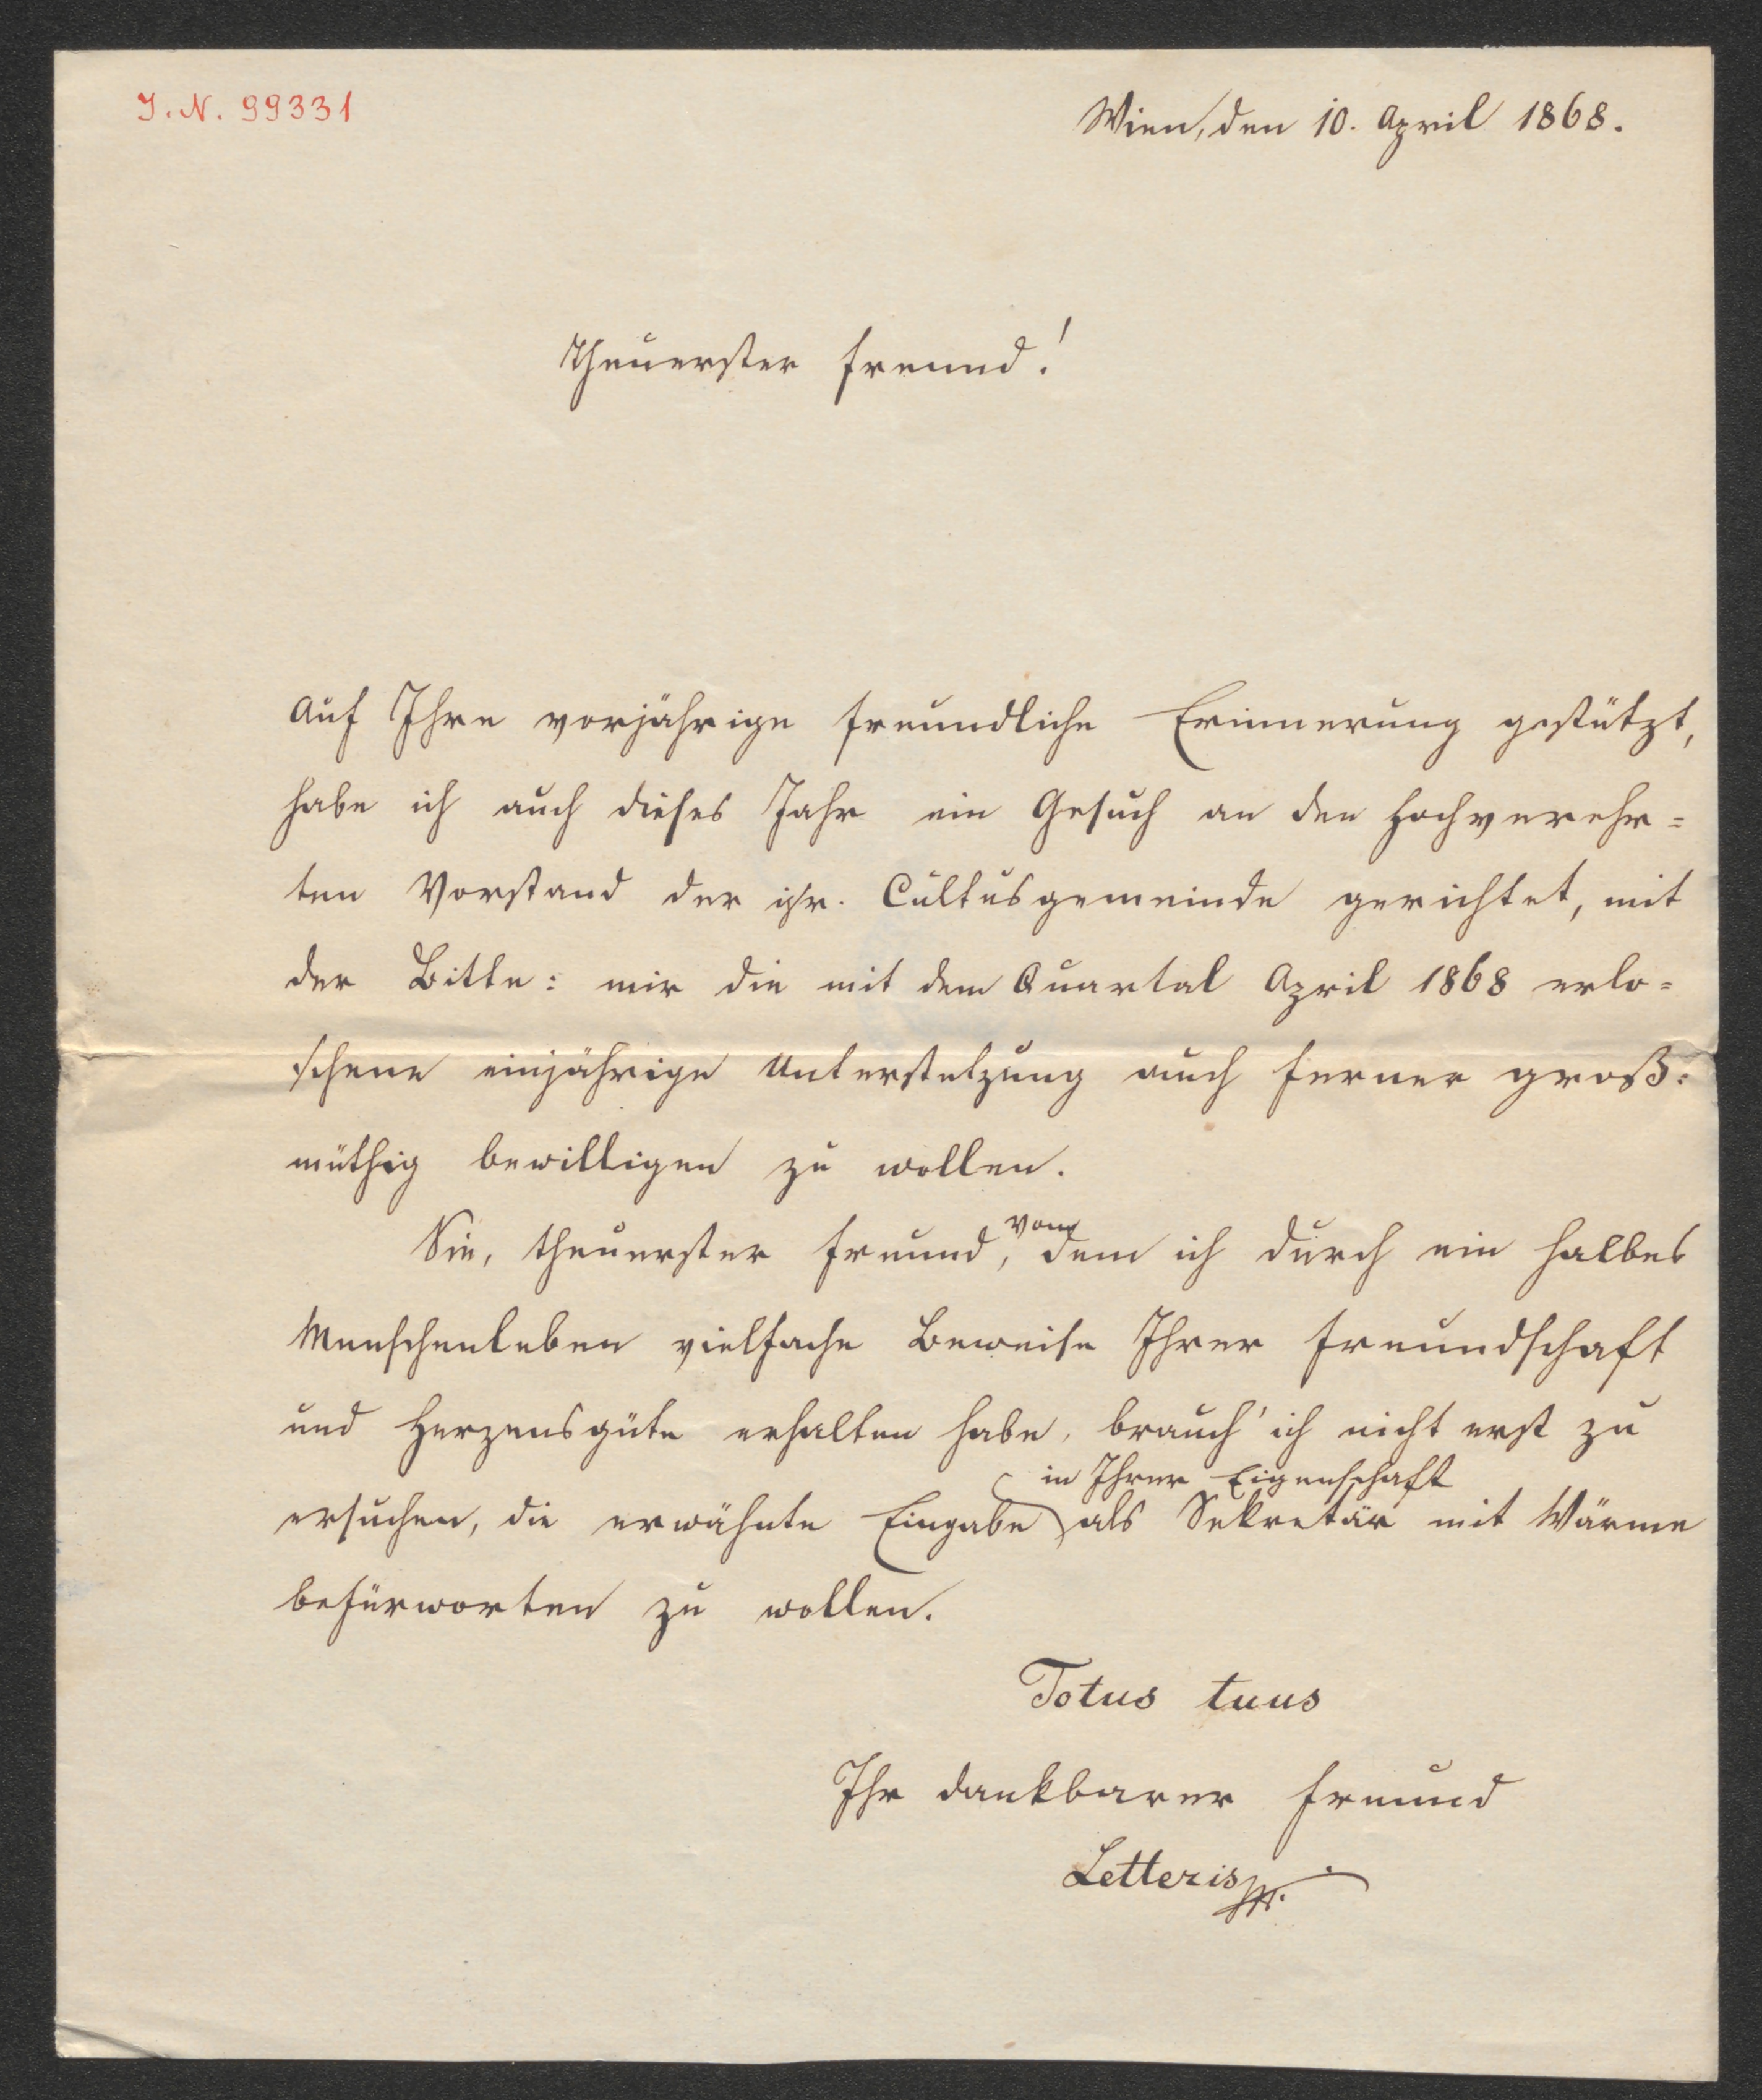 J. N. 99331
Wien, den 10. April 1868.
Theuerster Freund!
Auf Ihre vorjährige freundliche Erinnerung gestützt,
habe ich auch dieses Jahr ein Gesuch an den hochverehr=
ten Vorstand der isr. Cultusgemeinde gerichtet, mit
der Bitte: mir die mit dem Quartal April 1868 erlo=
schene einjährige Unterstetzung auch ferner groß=
müthig bewilligen zu wollen.
Sie, theuerster Freund, von dem ich durch ein halbes
Menschenleben vielfache Beweise Ihrer Freundschaft
und Herzensgüte erhalten habe, brauch' ich nicht erst zu
ersuchen, die erwähnte Eingabe in Ihrer Eigenschaft als Sekretär mit Wärme
befürworten zu wollen.
Totus tuus
Ihr dankbarer Freund
Letteris